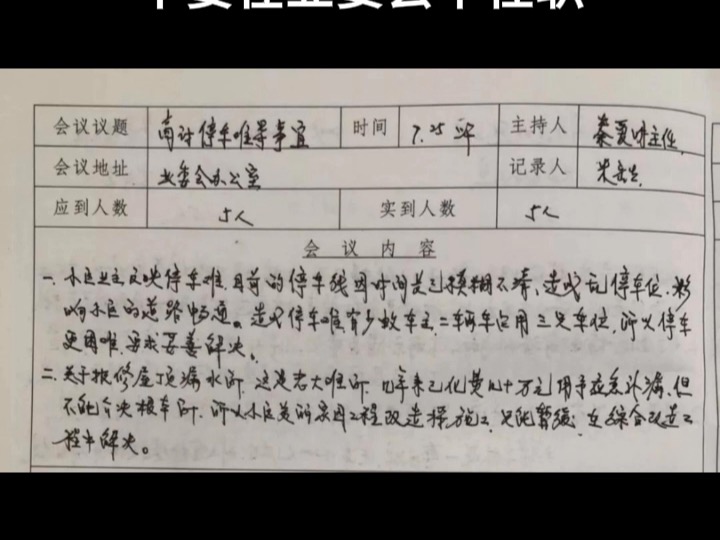 会议议题 商讨停车难等事宜 时间 7.25 主持人 秦夏明主任
会议地址 业委会办公室 记录人 朱
应到人数 5人 实到人数 5人
会议内容
一、小区业主反映停车难,目前的停车线因时间长已模糊不清、造成乱停车位.影
响小区的道路畅通。造成停车难有少数车主,二辆车占用三只车位,所以停车
更困难.要求妥善解决。
二、关于报修屋顶漏水 这是老大难 几年来已化费几十万元用于应急补漏,但
不能 所以小区 工程改造 只能暂缓 在综合改造工
程中解决。